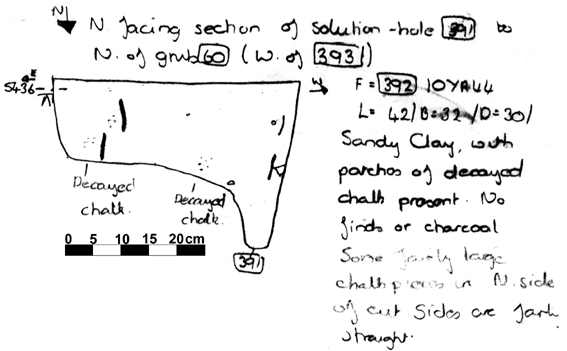 N
N. facing section of solution-hole 391 to
N. of grub 60 (W. of 393)
E
5436
W
F = 392 10YR44
L= 42/B=32/D=30/
Sandy Clay, with
patches of decayed
chalk present. No
finds or charcoal
Some fairly large
chalk pieces in N. side
of cut Sides are fairly
straight.
Decayed
chalk.
Decayed
chalk.
0 5 10 15 20cm
391